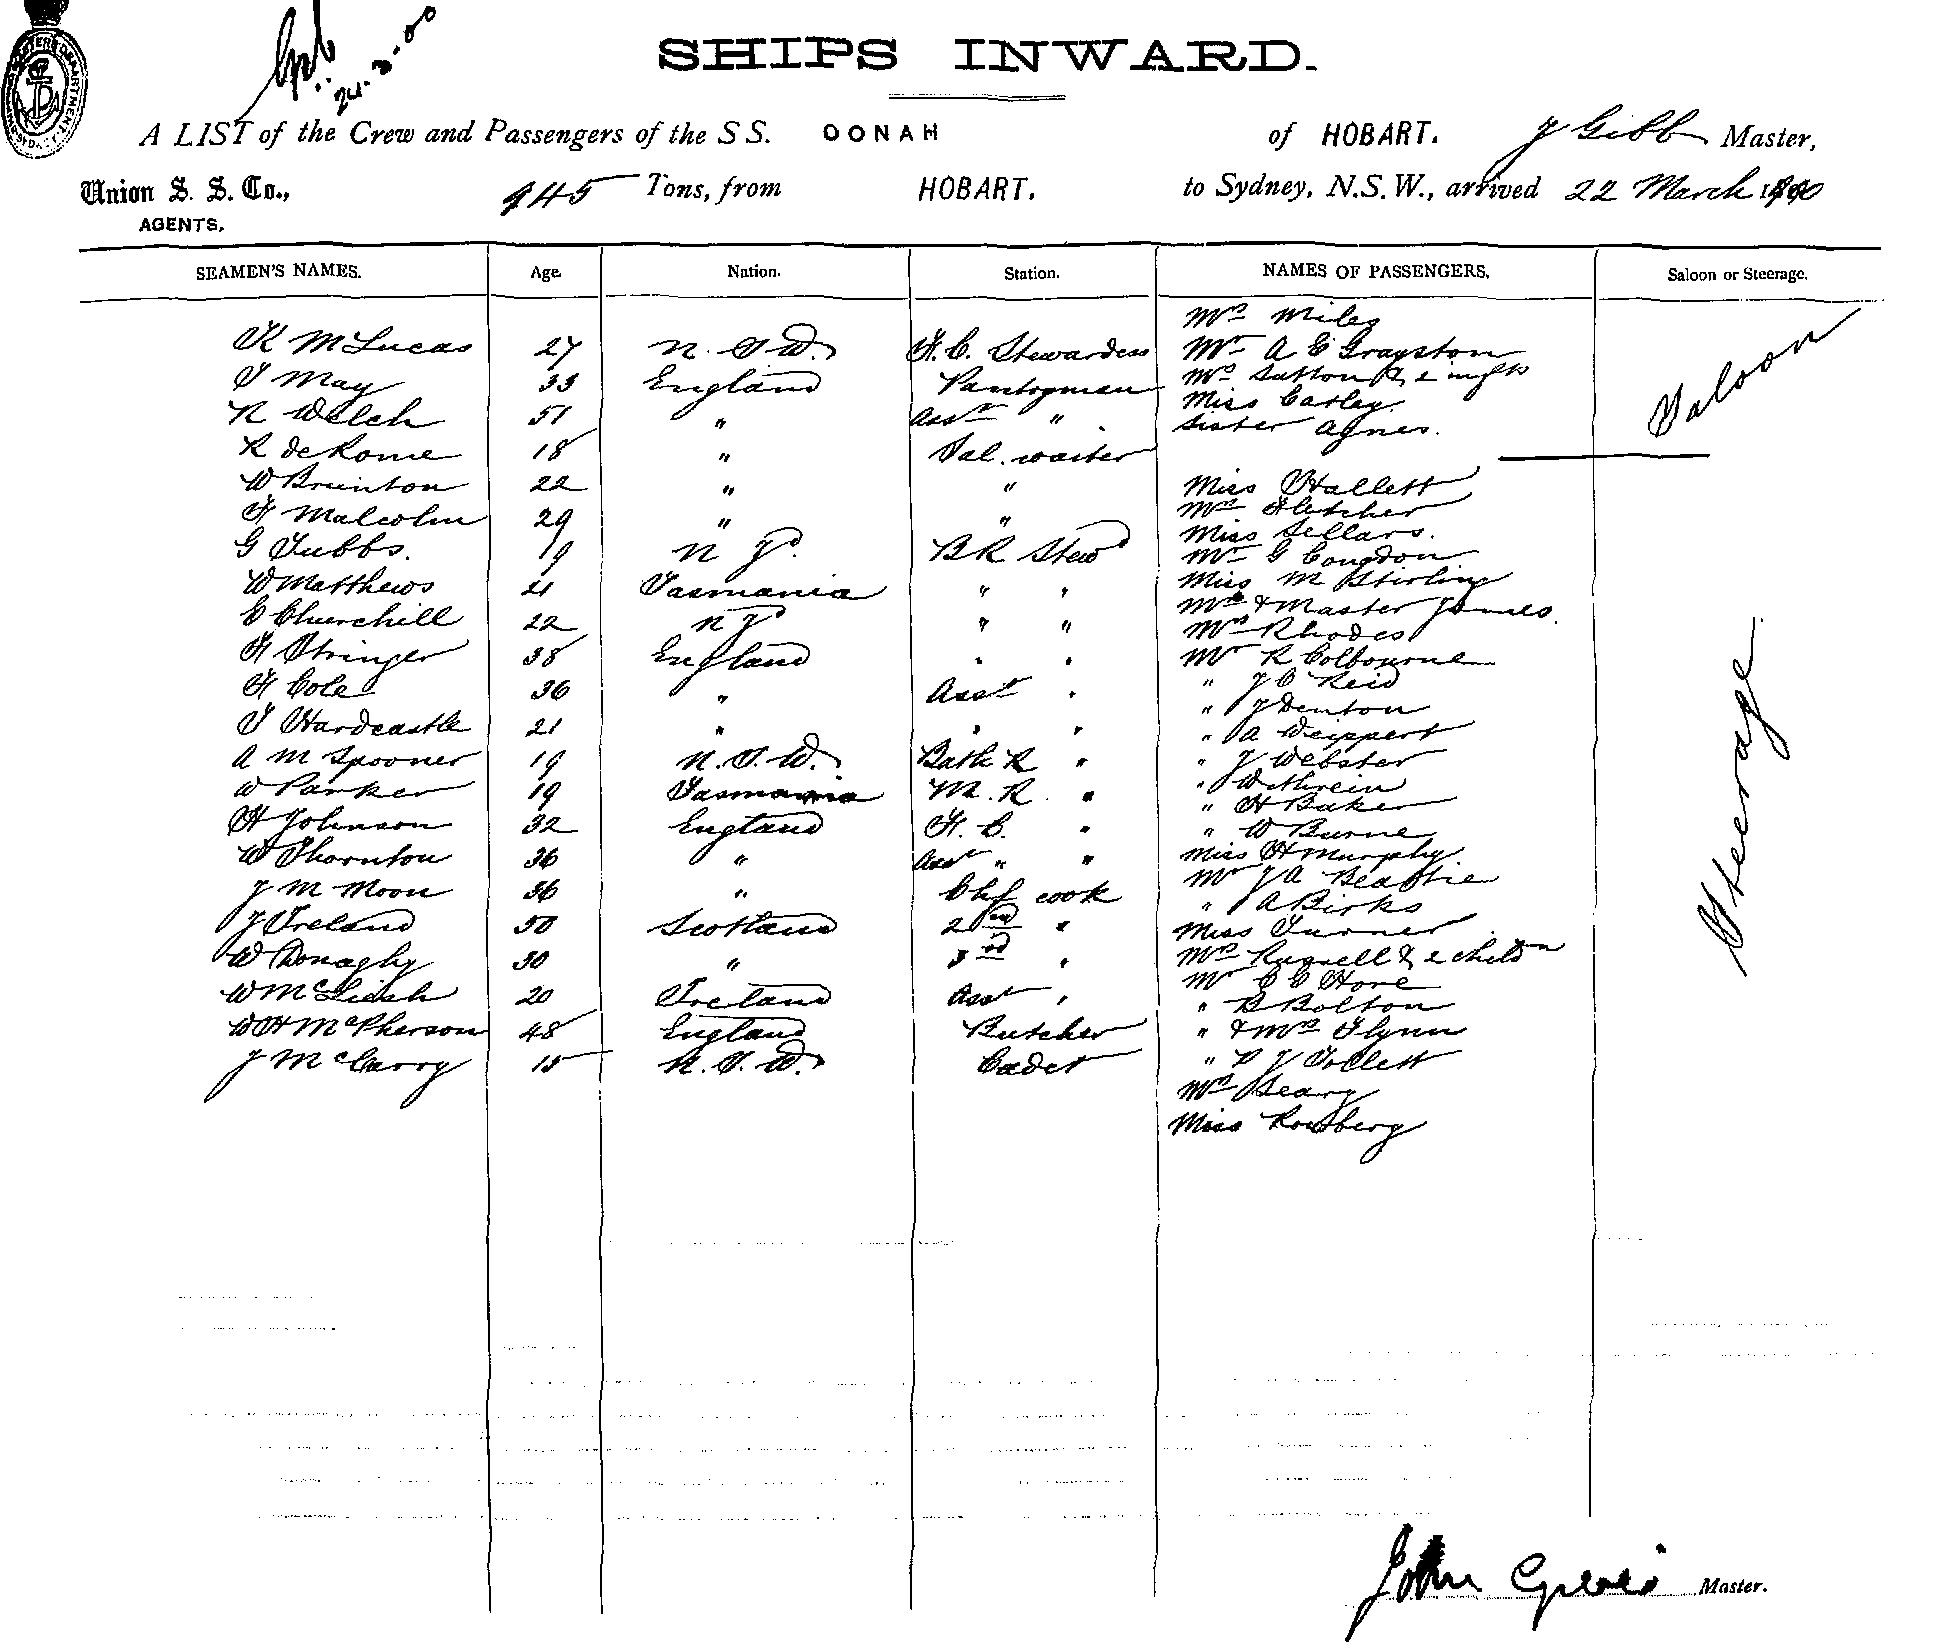 24.3.00
SHIPS INWARD.
A LIST of the Crew and Passengers of the S S. OONAH of HOBART. J Gibb Master,
Union S. S. Co., 945 Tons, from HOBART. to Sydney, N.S.W., arrived 22 March 1900
AGENTS.
SEAMEN'S NAMES. Age. Nation. Station. NAMES OF PASSENGERS. Saloon or Steerage.
Mrs Miles
K McLucas 27 N.S.W. F.C. Stewardess Mr A E Grayston
T May 33 England Pantryman Mrs Sutton & 2
R Welch 51 " Asst " Miss Catley.
Sister Agnes.
Saloon
R de Rome 18 " Sal. waiter
W Brunton 22 " " Miss Hallett
F Malcolm 29 " " Mrs Fletcher
Miss Sellars.
G Tubbs. 19 N Zd. BR Stewd Mr G Congdon
W Matthews 21 Tasmania " " Miss M Stirling
C Churchill 22 N Zd " " Mrs & Master James.
Mrs Rhodes
F Stringer 38 England " " Mr R Colbourne
F Cole 36 " Asst " " J C Reid
" J Denton
T Hardcastle 21 " " " " A Weippert
A M Spooner 19 N.S.W. Bath R " " J Webster
W Parker 19 Tasmania M.R. " "
" H Baker
H Johnson 32 England F.C. " " W Burne
W Thornton 36 " Asst " " Miss H Murphy.
J M Moon 36 " Chf cook Mr J A Beattie
" A Birks
J Ireland 50 Scotland 2nd " Miss Turner
W Donaghy 30 " 3rd " Mrs Russell & 2 childn
Mr C C Hore
W McLiesh 20 Ireland Asst " " B Bolton
W H McPherson 48 England Butcher " & Mrs Flynn
J McCarry 15 N.S.W. Cadet " P J Follett
Mrs Geary
Miss Rosberg
Steerage.
John Master.